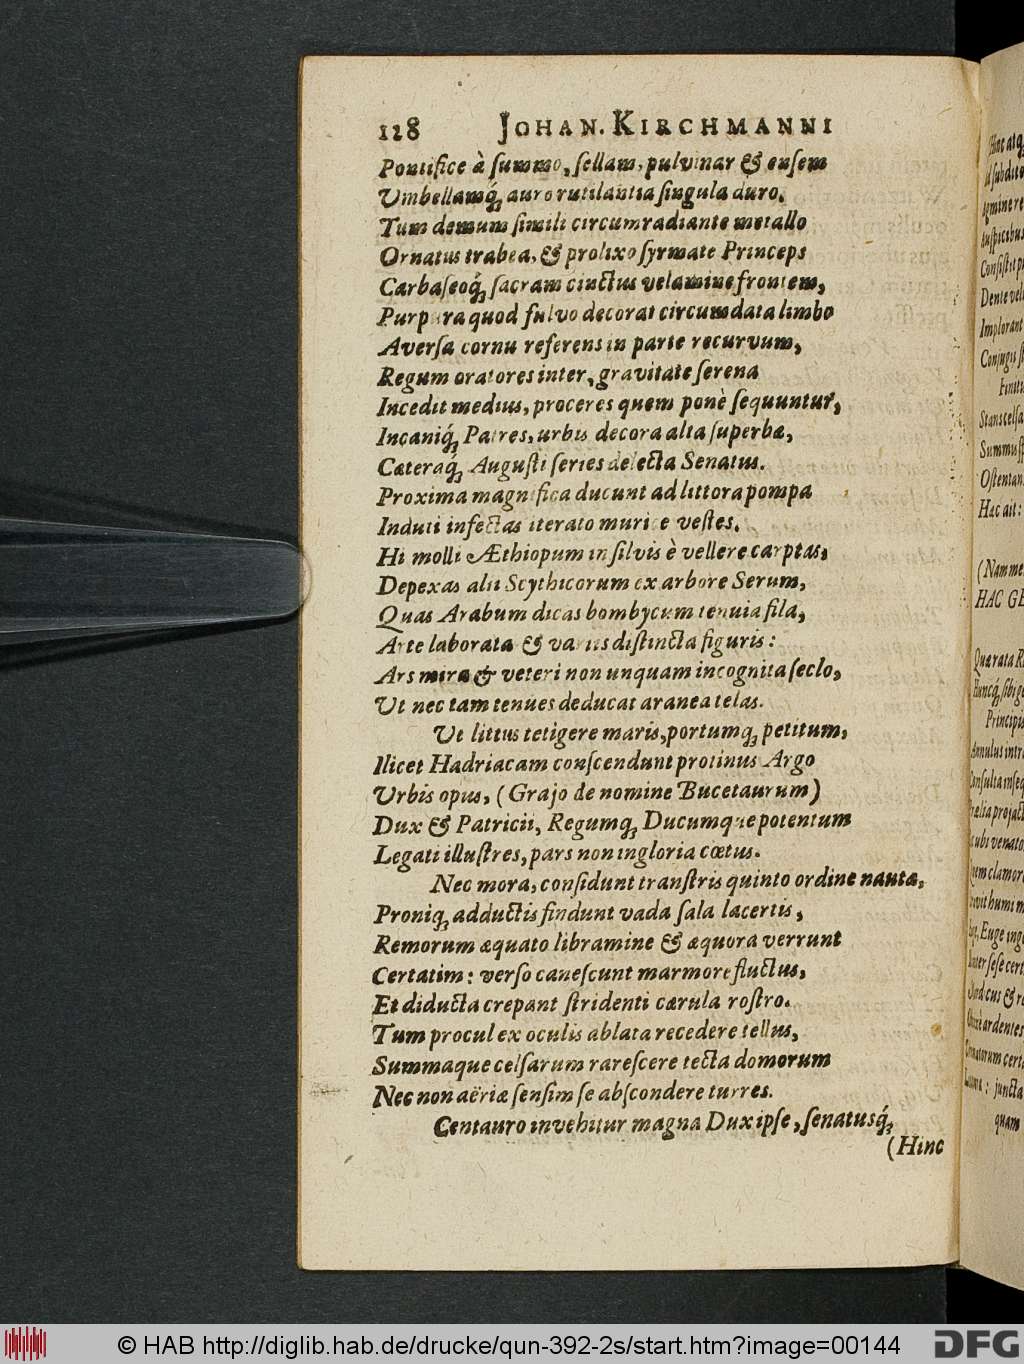 128 JOHAN. KIRCHMANNI
Pontifice à summo, sellam, pulvinar & ensem
Umbellamq́; auro rutilantia singula duro.
Tum demum simili circumradiante metallo
Ornatus trabea, & prolixo syrmate Princeps
Carbaseoq́; sacram cinctus velamine frontem,
Purpura quod fulvo decorat circumdata limbo
Aversa cornu referens in parte recurvum,
Regum oratores inter, gravitate serena
Incedit medius, proceres quem ponè sequuntur,
Incaniq́; Patres, urbis decora alta superbæ,
Cæteraq́; Augusti series delecta Senatus.
Proxima magnifica ducunt ad littora pompa
Induti infectas iterato murice vestes.
Hi molli Æthiopum in silvis è vellere carptas,
Depexas alii Scythicorum ex arbore Serum,
Quas Arabum dicas bombycum tenuia fila,
Arte laborata & variis distincta figuris:
Ars mira & veteri non unquam incognita seclo,
Ut nec tam tenues deducat aranea telas.
Ut littus tetigere maris, portumq; petitum,
Ilicet Hadriacam conscendunt protinus Argo
Urbis opus, (Grajo de nomine Bucetaurum)
Dux & Patricii, Regumq; Ducumque potentum
Legati illustres, pars non ingloria cœtus.
Nec mora, considunt transtris quinto ordine nautæ,
Proniq; adductis findunt vada salsa lacertis,
Remorum æquato libramine & æquora verrunt
Certatim: verso canescunt marmore fluctus,
Et diducta crepant stridenti cærula rostro.
Tum procul ex oculis ablata recedere tellus,
Summaque celsarum rarescere tecta domorum
Nec non aëriæ sensim se abscondere turres.
Centauro invehitur magna Dux ipse, senatusq́;
(Hinc
Hinc atq;
Agmine
Auspicibus
Dente
Implorant
Conjugis
Summus
Hac ait:
(Nam me
HAC GE
Principis
Annulus
quam
© HAB http://diglib.hab.de/drucke/qun-392-2s/start.htm?image=00144
DFG